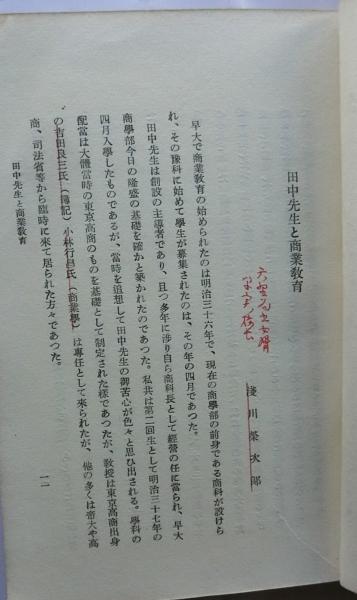 田中先生と商業教育
淺川榮次郎
早大で商業教育の始められたのは明治三十六年で、現在の商學部の前身である商科が設けら
れ、その豫科に始めて學生が募集されたのは、その年の四月であつた。
田中先生は創設の主導者であり、且つ多年に涉り自ら商科長として經營の任に當られ、早大
商學部今日の隆盛の基礎を確かと築かれたのであつた。私共は第二回生として明治三十七年の
四月入學したものであるが、當時を追想して田中先生の御苦心が色々と思ひ出される。學科の
配當は大體當時の東京高商のものを基礎として制定された樣であつたが、教授は東京高商出身
の吉田良三氏(簿記)小林行昌氏(商業學)は專任として來られたが、他の多くは帝大や高
商、司法省等から臨時に來て居られた方々であつた。
田中先生と商業教育
一一